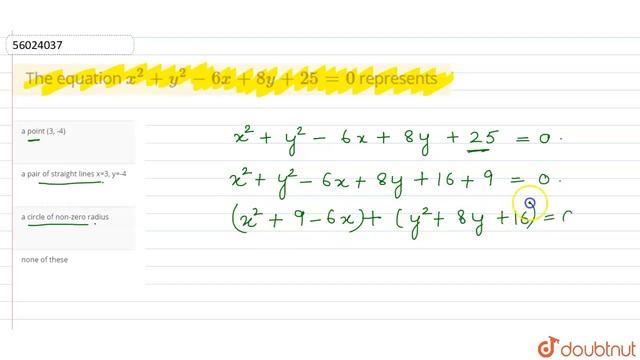 56024037
The equation x² + y² − 6x + 8y + 25 = 0 represents
a point (3, -4)
a pair of straight lines x=3, y=-4
a circle of non-zero radius
none of these
x² + y² − 6x + 8y + 25 = 0.
x² + y² − 6x + 8y + 16 + 9 = 0.
(x² + 9 − 6x) + (y² + 8y + 16) =
doubtnut